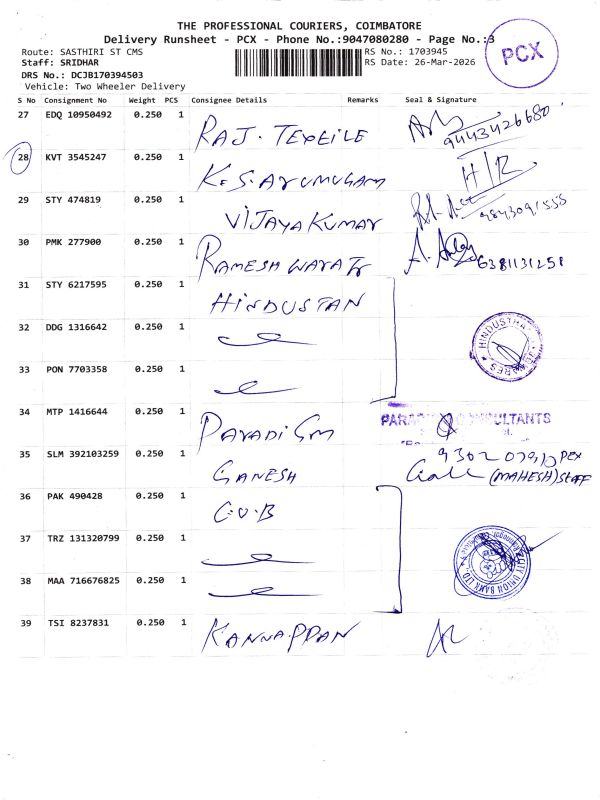 THE PROFESSIONAL COURIERS, COIMBATORE
Delivery Runsheet - PCX - Phone No.:9047080280 - Page No.:3
PCX
Route: SASTHIRI ST CMS
RS No.: 1703945
Staff: SRIDHAR
RS Date: 26-Mar-2026
DRS No.: DCJB170394503
Vehicle: Two Wheeler Delivery
S No Consignment No Weight PCS Consignee Details Remarks Seal & Signature
27 EDQ 10950492 0.250 1 RAJ. TEXTILE 9443426680
28 KVT 3545247 0.250 1 K.S. ARUMUGAM H/R
29 STY 474819 0.250 1 VIJAYA KUMAR 9843091555
30 PMK 277900 0.250 1 RAMESHWARA Tr 6381131251
31 STY 6217595 0.250 1 HINDUSTAN
32 DDG 1316642 0.250 1
HINDUSTHAN
33 PON 7703358 0.250 1
34 MTP 1416644 0.250 1 CONSULTANTS
35 SLM 392103259 0.250 1 GANESH PCX
(MAHESH) STAFF
36 PAK 490428 0.250 1 C.U.B
37 TRZ 131320799 0.250 1
CITY UNION BANK LTD.
38 MAA 716676825 0.250 1
39 TSI 8237831 0.250 1 KANNAPPAN